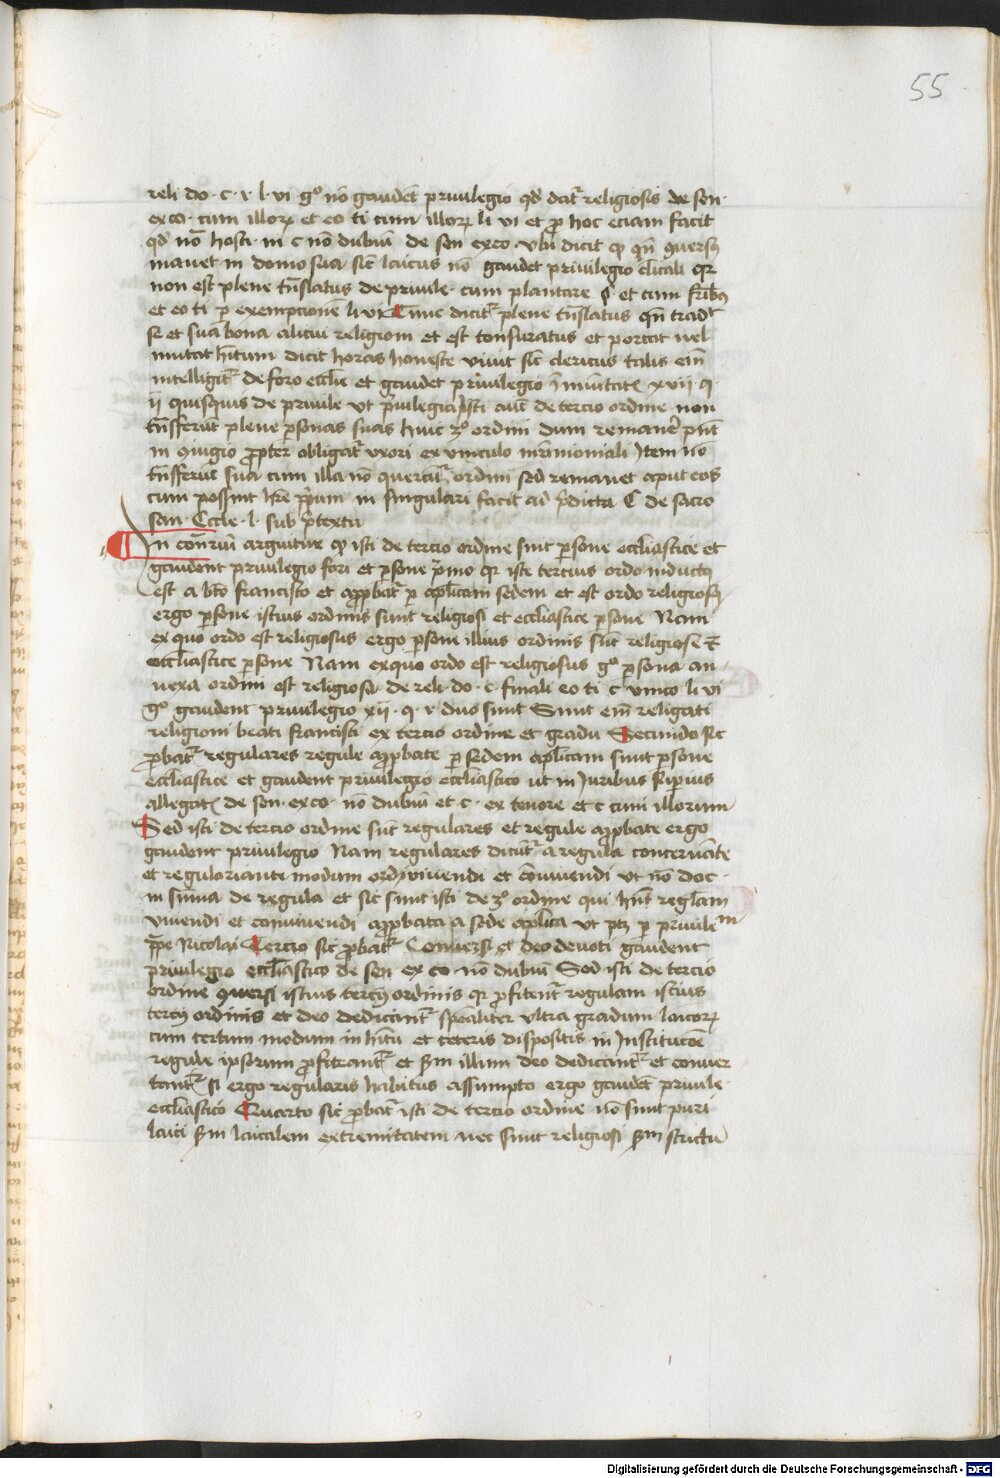 55
reli do · c · r l · vi gͦ nō gaudēt priuilegio qd dat̉ religiosis de sen ·
exco · cum illoꝝ et eo ti cum illoꝝ li vi et ꝓ hoc eciam facit
qd no hosti · in c nō dubiū de sen exco · vbi dicit ꝙ qn̄ ꝯuersꝰ
manet in domo sua sic̄ laicus nō gaudet priuilegio cl̄icali qꝛ
non est plene tn̄slatus de priuile · cum plantare § et cum frībꝰ
et eo ti ꝑ exempcionē li vi Tunc dicit̉ plene tn̄slatus qn̄ tradt
se et sua bona alicui religioni et est tonsuratus et portat uel
mutat hītum dicit horas honeste viuit sic̄ clericus talis em̄
intelligit̉ de foro eccl̄ie et gaudet priuilegio īmūitatꝭ xvii q ·
ii quisquis de priuile vt pͥuilegia Isti aūt de tercio ordine non
tn̄sferūt plene ꝑsonas suas huic 3ͦ ordini dum remanēt
in ꝯiugio ꝓpter obligat̉ vxori ex vinculo mr̄imoniali Item nō
tn̄sferūt sua cum illa nō ordini sed remanet aput eos
cum possint hr̄e ꝓpͥum in singulari facit ad p̄dicta C de sacro
san · Eccle · l · sub p̄textu
In con̄riū arguitur ꝙ isti de tercio ordine sint ꝑsone eccl̄iastice et
gaudent priuilegio fori et ꝑsone pͥmo qꝛ iste tercius ordo inductꝰ
est a bt̄o francisco et app̄bat̉ ꝑ apl̄icam sedem et est ordo religiosꝰ
ergo ꝑsone istius ordinis sunt religiosi et eccl̄iastice ꝑsone Nam
ex quo ordo est religiosus ergo ꝑsone illius ordinis sūt religiose et
eccl̄iastice ꝑsone Nam exquo ordo est religiosus gͦ ꝑsona an
nexa ordini est religiosa de reli · do · c · finali eo ti c vnico li vi
gͦ gaudent priuilegio xii · q · i duo sunt Sunt em̄ religati
religioni beati francisci ex tercio ordine et gradu Secundo sic
ꝓbat̉ regulares regule app̄bate ꝑ sedem apl̄icam sunt ꝑsone
eccl̄iastice et gaudent priuilegio eccl̄iastico ut in Iuribus supͥus
allegatꝭ de sen · exco · nō dubiū et c · ex tenore et c cum illorum
Sed isti de tercio ordine sūt regulares et regule app̄bate ergo
gaudent priuilegio Nam regulares dicūt̉ a regula concernente
et regulariante modum ordī viuendi et cōuiuendi vt nō doc ·
in sūma de regula et sic sunt isti de 3ͦ ordine qui hn̄t regl̄am
viuendi et conuiuendi app̄bata a sede apl̄ica vt ptꝫ ꝑ priuileᵐ
pp̄e Nicolai Tercio sic ꝓbat̉ Conuersi et deo deuoti gaudent
priuilegio eccl̄iastico de sen ex co nō dubiū Sed isti de tercio
ordine ꝯuersi istius tercij ordinis qꝛ ꝓfitent̉ regulam istius
tercij ordinis et deo dedicant̉ sp̄ealiter vltra gradum laicoꝝ
cum certum modum in hītu et ceteris dispositis in Institucōe
regule ipsorum ꝓfiteant̉ et ẜm illum deo dedicant̉ et conuer
tant̉ si ergo regularis habitus assumpto ergo gaudēt priuile ·
eccl̄iastico Quarto sic ꝓbat̉ isti de tercio ordine nō sunt puri
laici ẜm laicalem extremitatem nec sunt religiosi ẜm strictū
Digitalisierung gefördert durch die Deutsche Forschungsgemeinschaft - DFG